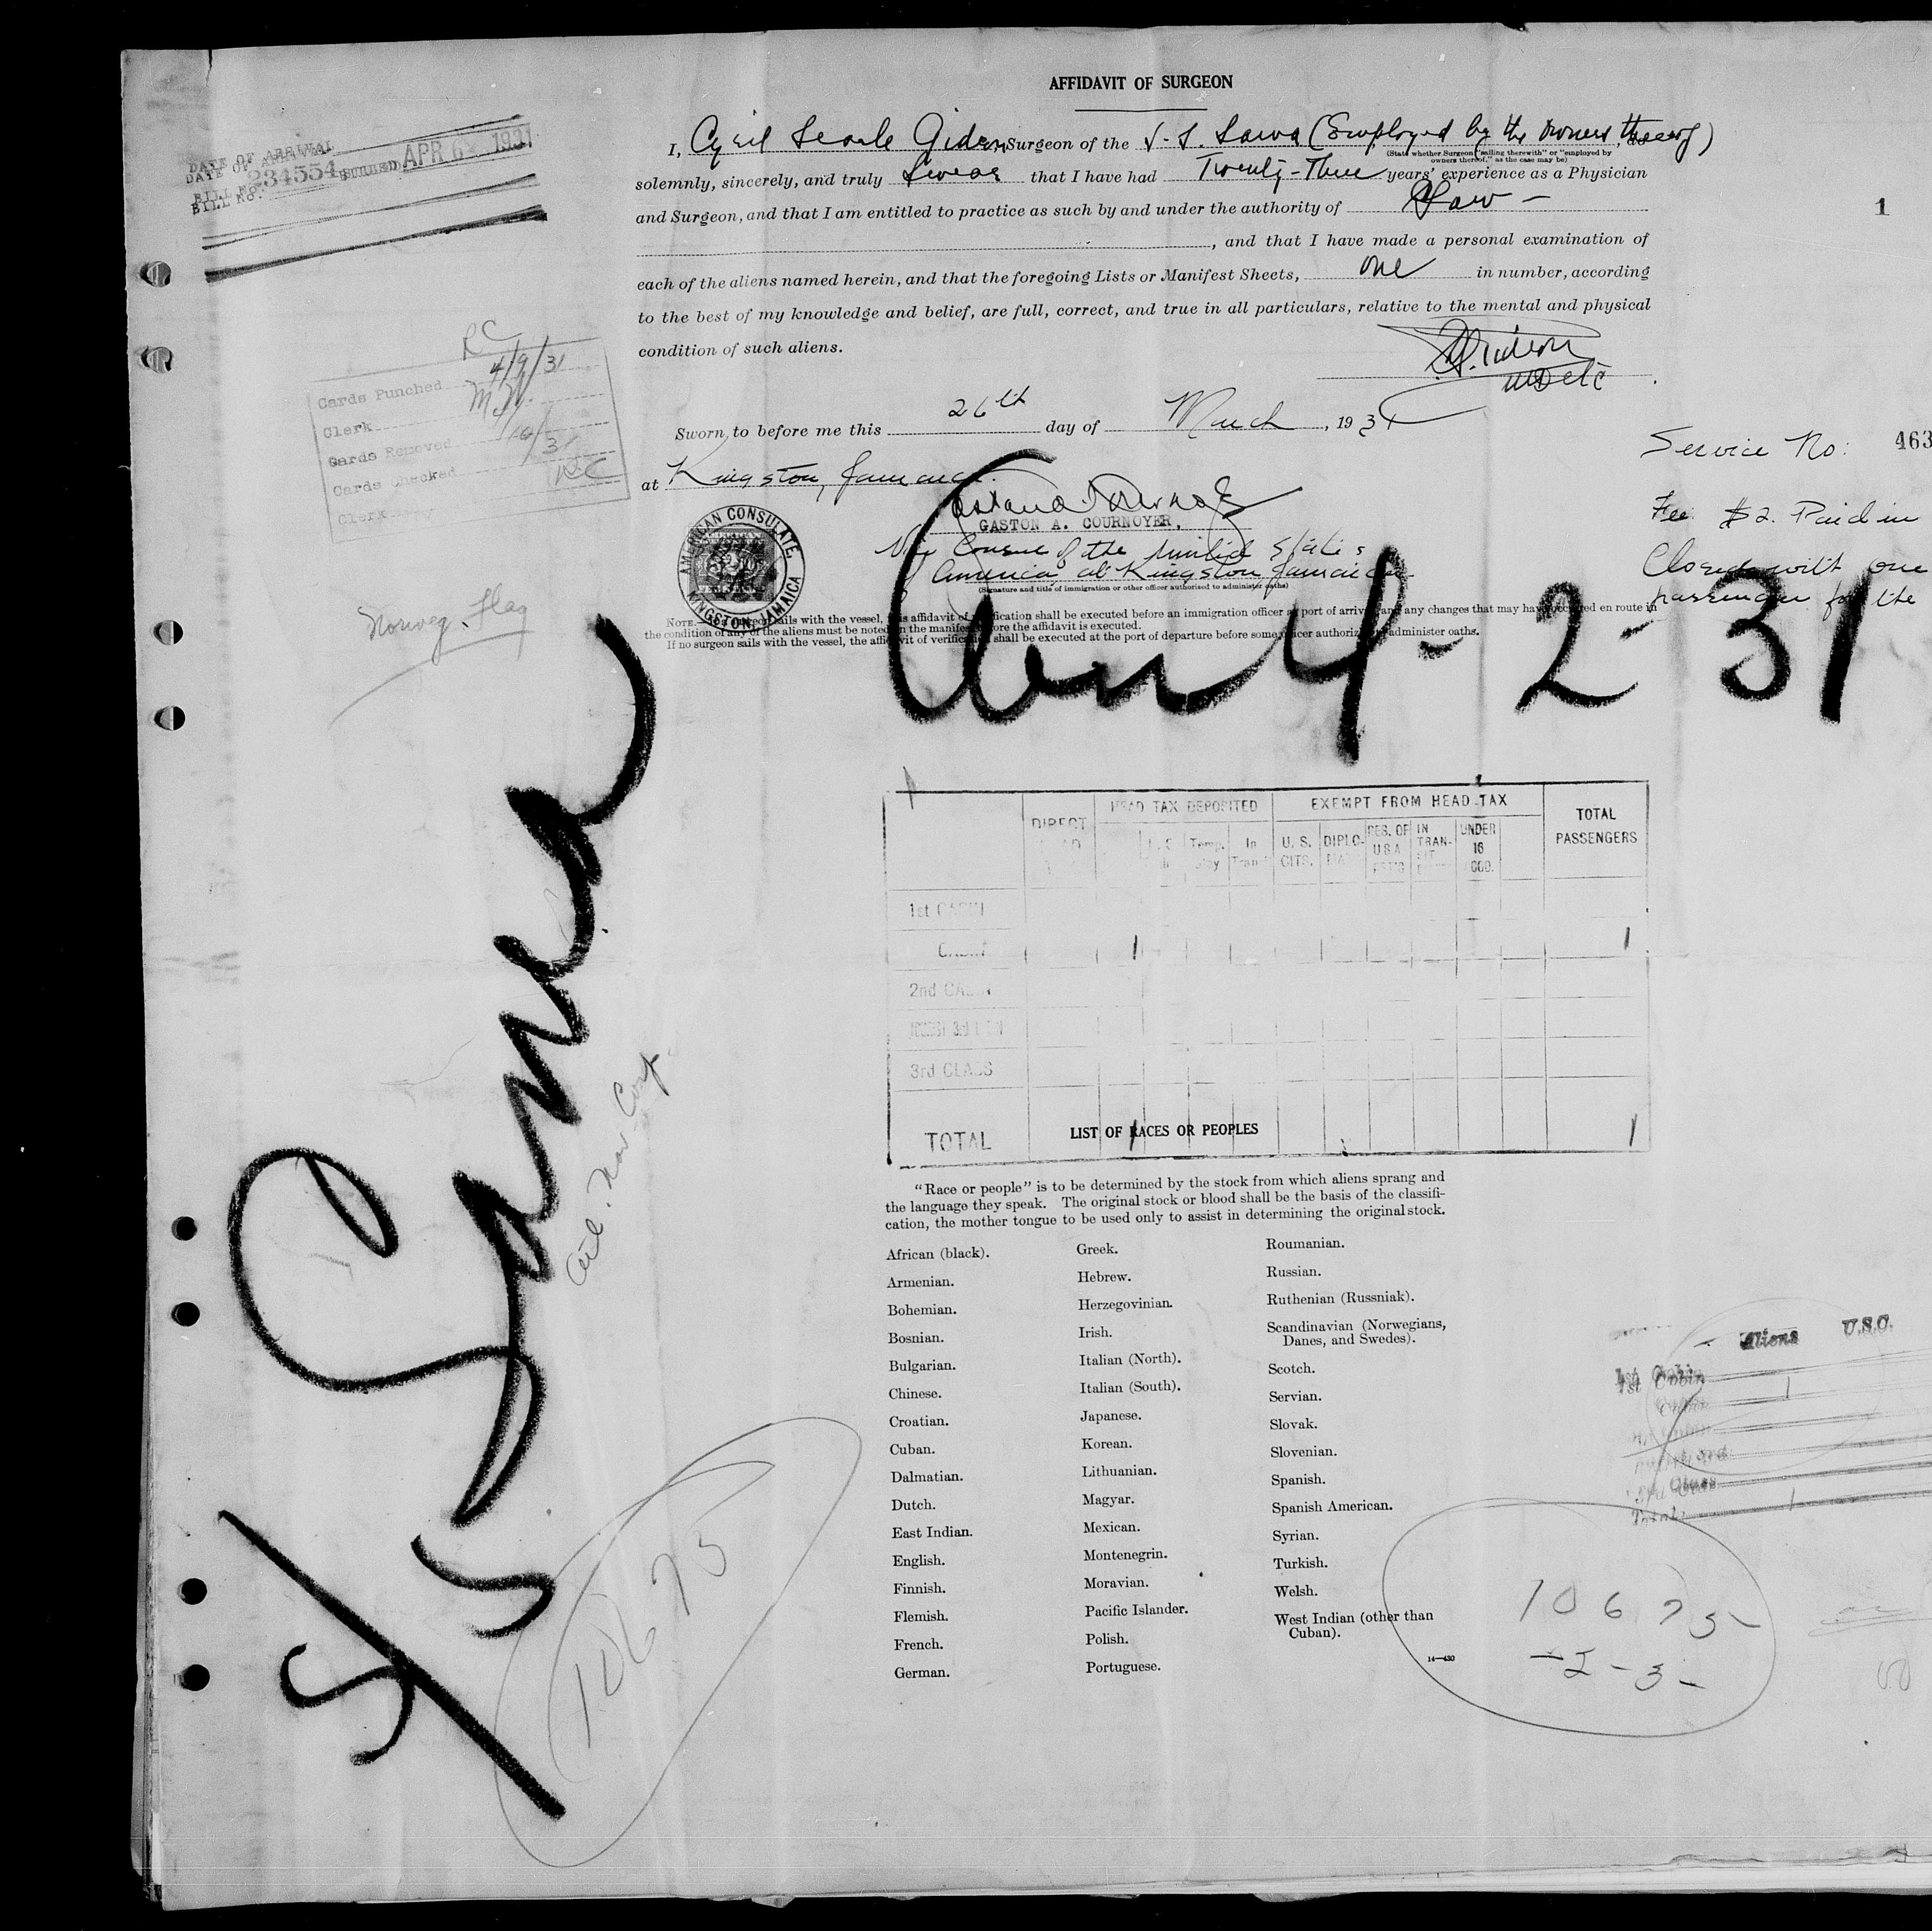 AFFIDAVIT OF SURGEON
I, Cyril Searle Gideon, Surgeon of the S.S. (Employed by the owners thereof)
(State whether Surgeon "sailing therewith" or "employed by
owners thereof," as the case may be)
solemnly, sincerely, and truly swear that I have had Twenty-Three years' experience as a Physician
and Surgeon, and that I am entitled to practice as such by and under the authority of Law -
, and that I have made a personal examination of
each of the aliens named herein, and that the foregoing Lists or Manifest Sheets, one in number, according
to the best of my knowledge and belief, are full, correct, and true in all particulars, relative to the mental and physical
condition of such aliens.
Sworn to before me this 26th day of March, 1931
at Kingston, Jamaica.
GASTON A. COURNOYER,
Vice Consul of the United States
of America at Kingston Jamaica
(Signature and title of immigration or other officer authorized to administer oaths)
AMERICAN CONSULATE, KINGSTON, JAMAICA
NOTE.—If a surgeon sails with the vessel, this affidavit of verification shall be executed before an immigration officer at port of arrival, and any changes that may have occurred en route in
the condition of any of the aliens must be noted on the manifest before the affidavit is executed.
If no surgeon sails with the vessel, the affidavit of verification shall be executed at the port of departure before some officer authorized to administer oaths.
DATE OF ARRIVAL
BILL NO. 234554 APR 6 1931
RC
Cards Punched 4/9/31
Clerk M.W.
Cards Removed
Cards Checked RC
Clerk
Norweg. Flag
1
Service No: 463
Fee $2. Paid in
Closed with one
passenger for the
Arr 4-2-31
HEAD TAX DEPOSITED EXEMPT FROM HEAD TAX TOTAL PASSENGERS
DIRECT Temp. Stay In Transit U. S. CITS. DIPLO- RES. OF U.S.A. IN TRAN- SIT UNDER 16
1st CABIN
CABIN 1 1
2nd CABIN
3rd CLASS
TOTAL 1 1
LIST OF RACES OR PEOPLES
"Race or people" is to be determined by the stock from which aliens sprang and
the language they speak. The original stock or blood shall be the basis of the classifi-
cation, the mother tongue to be used only to assist in determining the original stock.
African (black).
Armenian.
Bohemian.
Bosnian.
Bulgarian.
Chinese.
Croatian.
Cuban.
Dalmatian.
Dutch.
East Indian.
English.
Finnish.
Flemish.
French.
German.
Greek.
Hebrew.
Herzegovinian.
Irish.
Italian (North).
Italian (South).
Japanese.
Korean.
Lithuanian.
Magyar.
Mexican.
Montenegrin.
Moravian.
Pacific Islander.
Polish.
Portuguese.
Roumanian.
Russian.
Ruthenian (Russniak).
Scandinavian (Norwegians,
Danes, and Swedes).
Scotch.
Servian.
Slovak.
Slovenian.
Spanish.
Spanish American.
Syrian.
Turkish.
Welsh.
West Indian (other than
Cuban).
14—430
Aliens U.S.C.
1st Cabin 1
Total 1
10675
-2-3-
10675
S/S